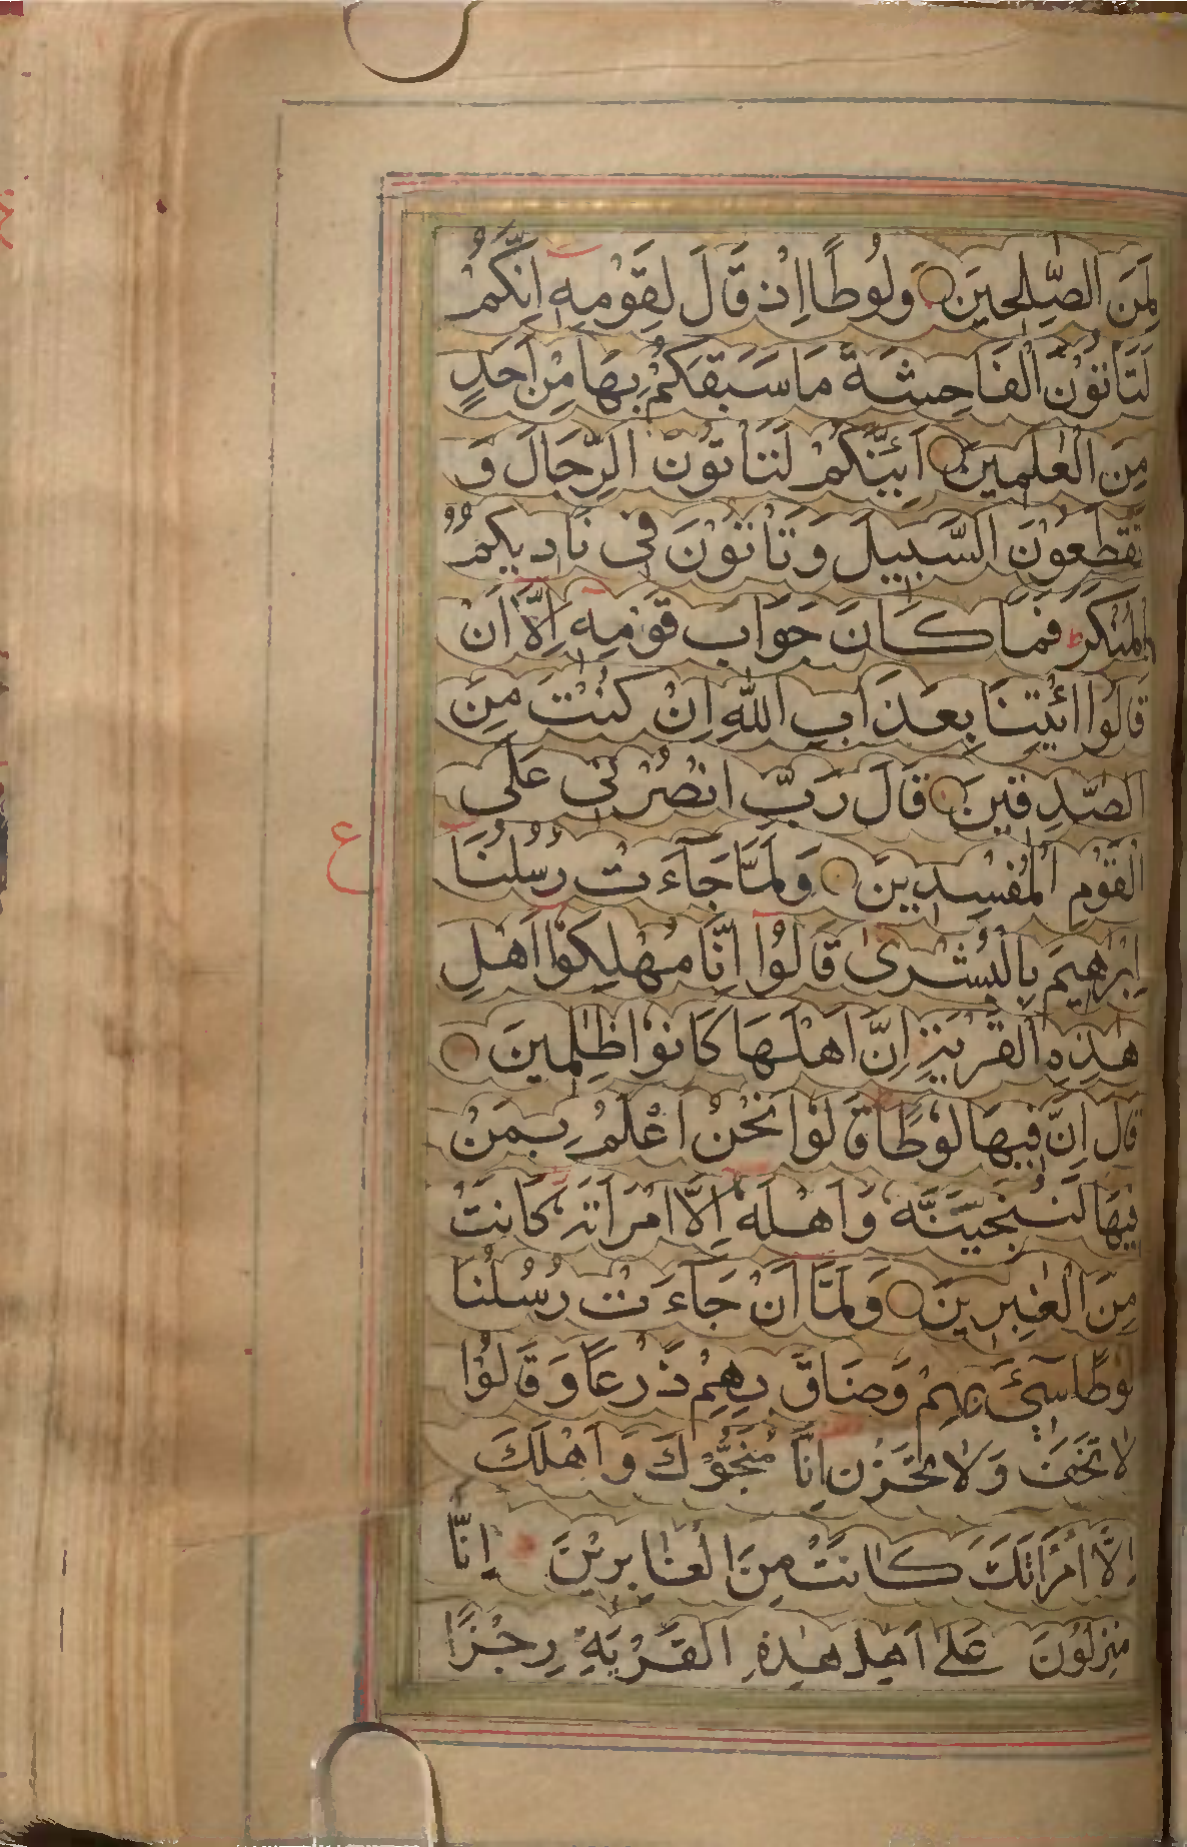 لَمِنَ الصّٰلِحِينَ وَلُوطًا اِذْ قَالَ لِقَوْمِهٖ اِنَّكُمْ
لَتَأْتُوْنَ الْفَاحِشَةَ مَا سَبَقَكُمْ بِهَا مِنْ اَحَدٍ
مِنَ الْعٰلَمِينَ اَئِنَّكُمْ لَتَأْتُوْنَ الرِّجَالَ وَ
تَقْطَعُوْنَ السَّبِيلَ وَتَأْتُوْنَ فِى نَادِيكُمُ
الْمُنْكَرَ ط فَمَا كَانَ جَوَابَ قَوْمِهٖ اِلَّا اَنْ
قَالُوا ائْتِنَا بِعَذَابِ اللّٰهِ اِنْ كُنْتَ مِنَ
الصّٰدِقِينَ قَالَ رَبِّ انْصُرْنِى عَلَى
الْقَوْمِ الْمُفْسِدِينَ وَلَمَّا جَآءَتْ رُسُلُنَا
ع
اِبْرٰهِيمَ بِالْبُشْرٰى قَالُوْا اِنَّا مُهْلِكُوْا اَهْلِ
هٰذِهِ الْقَرْيَةِ اِنَّ اَهْلَهَا كَانُوْا ظٰلِمِينَ
قَالَ اِنَّ فِيهَا لُوْطًا قَالُوْا نَحْنُ اَعْلَمُ بِمَنْ
فِيهَا لَنُنَجِّيَنَّهٗ وَاَهْلَهٗ اِلَّا امْرَاَتَهٗ كَانَتْ
مِنَ الْغٰبِرِينَ وَلَمَّا اَنْ جَآءَتْ رُسُلُنَا
لُوطًا سِىٓءَ بِهِمْ وَضَاقَ بِهِمْ ذَرْعًا وَقَالُوْا
لَا تَخَفْ وَلَا تَحْزَنْ اِنَّا مُنَجُّوْكَ وَاَهْلَكَ
اِلَّا امْرَاَتَكَ كَانَتْ مِنَ الْغَابِرِيْنَ اِنَّا
مُنْزِلُوْنَ عَلٰى اَهْلِ هٰذِهِ الْقَرْيَةِ رِجْزًا